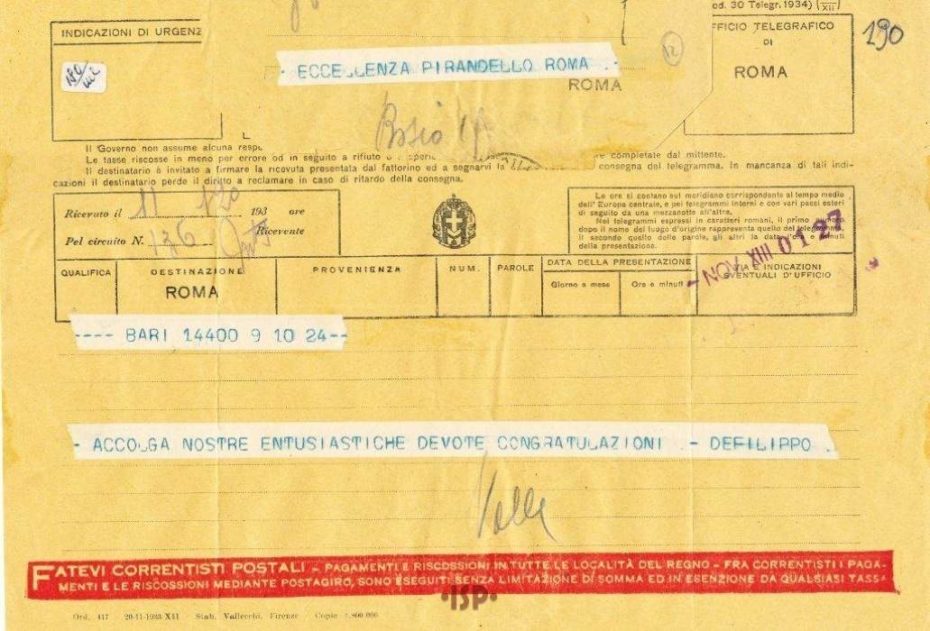 od. 30 Telegr. 1934)
INDICAZIONI DI URGENZ
FFICIO TELEGRAFICO
DI
ROMA
190
12
- ECCELLENZA PIRANDELLO ROMA .-
ROMA
Bosio
Il Governo non assume alcuna respo
Le tasse riscosse in meno per errore od in seguito a rifiuto o
re completate dal mittente.
Il destinatario è invitato a firmare la ricevuta presentata dal fattorino ed a segnarvi la
consegna del telegramma. In mancanza di tali indi-
cazioni il destinatario perde il diritto a reclamare in caso di ritardo della consegna.
Ricevuto il 11 193 ore
Pel circuito N. 136 Ricevente
Le ore si contano sul meridiano corrispondente al tempo medio
dell'Europa centrale, e pei telegrammi interni e con vari paesi esteri
di seguito da una mezzanotte all'altra.
Nei telegrammi espressi in caratteri romani, il primo
dopo il nome del luogo d'origine rappresenta quello del
il secondo quello delle parole, gli altri la data
della presentazione.
- NOV. XIII 01 27
QUALIFICA DESTINAZIONE PROVENIENZA NUM. PAROLE DATA DELLA PRESENTAZIONE VIA E INDICAZIONI
EVENTUALI D'UFFICIO
Giorno e mese Ore e minuti
ROMA
---- BARI 14400 9 10 24--
- ACCOLGA NOSTRE ENTUSIASTICHE DEVOTE CONGRATULAZIONI - DEFILIPPO .
Valle
FATEVI CORRENTISTI POSTALI - PAGAMENTI E RISCOSSIONI IN TUTTE LE LOCALITÀ DEL REGNO - FRA CORRENTISTI I PAGA-
MENTI E LE RISCOSSIONI MEDIANTE POSTAGIRO, SONO ESEGUITI SENZA LIMITAZIONE DI SOMMA ED IN ESENZIONE DA QUALSIASI TASS
•ISP•
Ord. 417 20-11-1933-XII - Stab. Vallecchi, Firenze - Copie